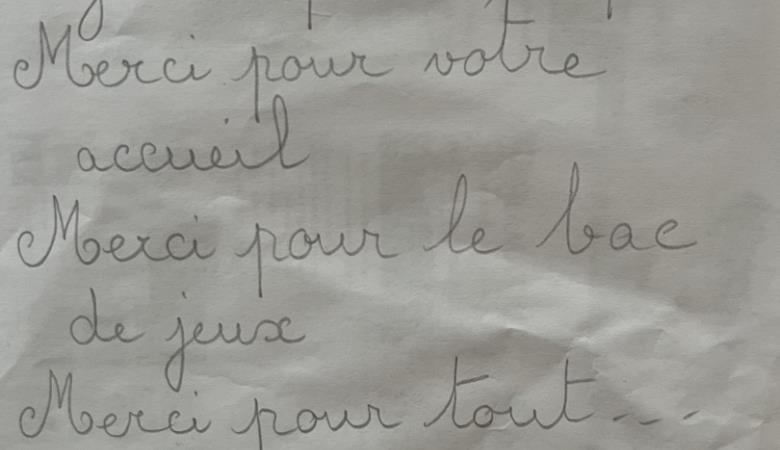 Merci pour votre
accueil
Merci pour le bac
de jeux
Merci pour tout...